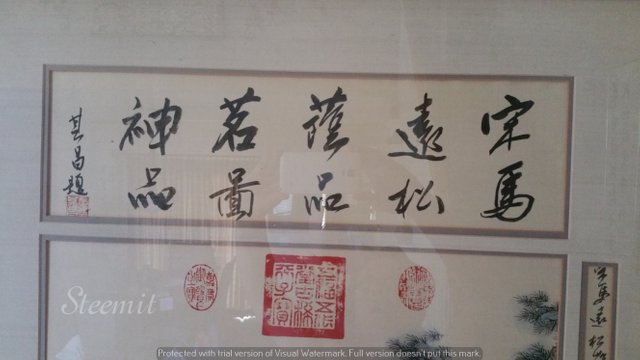 宋馬
遠松
蔭品
茗圖
神品
其昌題
宋馬遠松
Steemit
Protected with trial version of Visual Watermark. Full version doesn't put this mark.